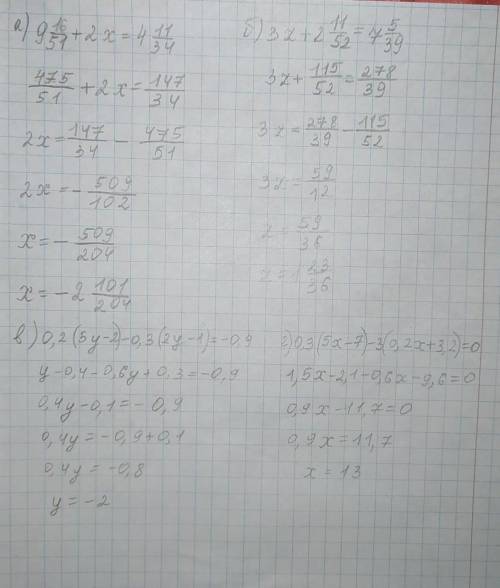 а) 9 16/51 + 2x = 4 11/34
475/51 + 2x = 147/34
2x = 147/34 - 475/51
2x = - 509/102
x = - 509/204
x = -2 101/204
б) 3z + 2 11/52 = 7 5/39
3z + 115/52 = 278/39
3z = 278/39 - 115/52
3z = 59/12
z = 59/36
z = 1 23/36
в) 0,2(5y-2)-0,3(2y-1)=-0,9
y-0,4-0,6y+0,3=-0,9
0,4y-0,1=-0,9
0,4y=-0,9+0,1
0,4y=-0,8
y=-2
г) 0,3(5x-7)-3(0,2x+3,2)=0
1,5x-2,1-0,6x-9,6=0
0,9x-11,7=0
0,9x=11,7
x=13